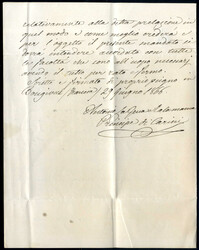 relativamente alla detta prelazione in
quel modo e come meglio crederà e
per l'oggetto il presente mandato si
dovrà intendere accordato con tutte
le facoltà che sono all'uopo necessarie
avendo il tutto per rato e fermo.
Scritto e firmato di proprio pugno in
29 Giugno 1866
Antonio La Grua e Talamanca
Principe di Carini